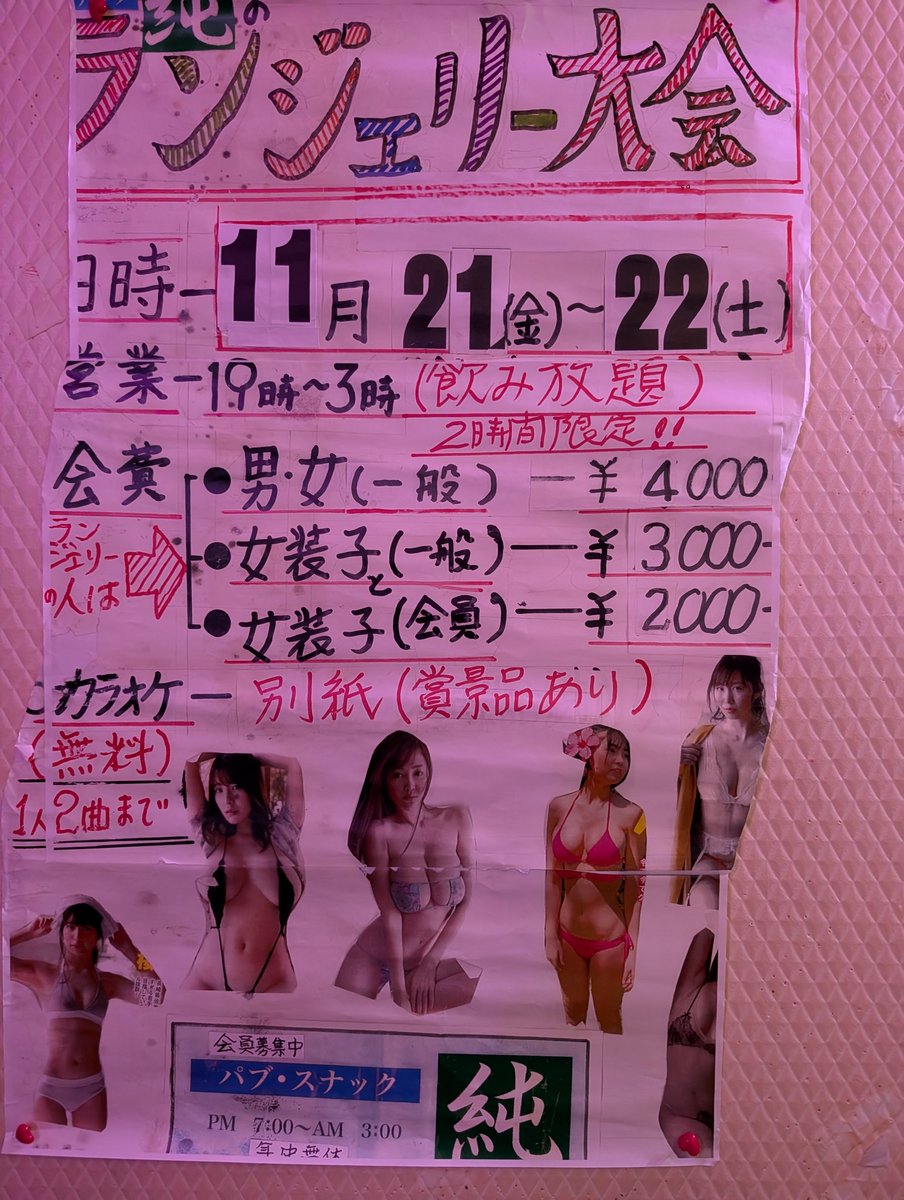 純の
ランジェリー大会
日時ー11月21(金)～22(土)
営業ー19時～3時(飲み放題)
2時間限定!!
会費
●男・女(一般)ー¥4000
ランジェリーの人は
●女装子と(一般)ー¥3000-
●女装子(会員)ー¥2000-
カラオケー別紙(賞景品あり)
(無料)
1人2曲まで
会員募集中
パブ・スナック
PM 7:00〜AM 3:00
年中無休
純